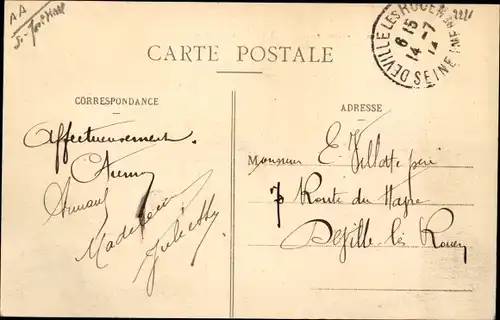 AA
CARTE POSTALE
DEVILLE LES ROUEN
6 15
14-7
14
SEINE INFRE
CORRESPONDANCE
ADRESSE
Affectueusement
Armand
Madeleine
Juliette
Monsieur E. Villotte père
7 Route du Havre
Deville-lès Rouen